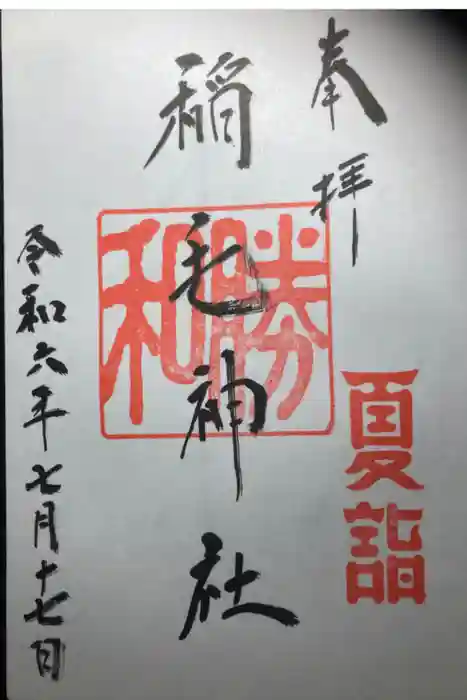 奉拝
夏詣
稲毛神社
勝和
令和六年七月十七日